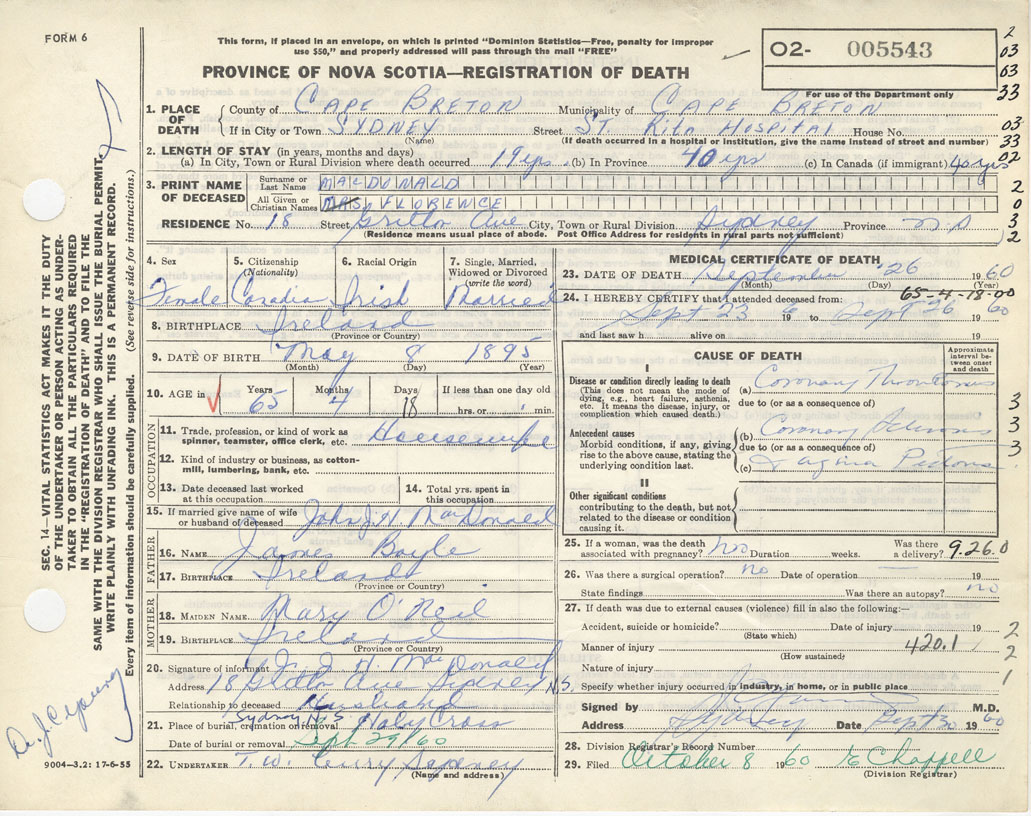 FORM 6
This form, if placed in an envelope, on which is printed "Dominion Statistics—Free, penalty for improper
use $50," and properly addressed will pass through the mail "FREE"
PROVINCE OF NOVA SCOTIA—REGISTRATION OF DEATH
O2- 005543
For use of the Department only
2
03
63
33
03
33
02
2
0
3
2
1. PLACE OF DEATH
County of CAPE BRETON Municipality of CAPE BRETON
If in City or Town SYDNEY Street ST. Rita HOSPITAL House No.
(Name) (If death occurred in a hospital or institution, give the name instead of street and number)
2. LENGTH OF STAY (in years, months and days)
(a) In City, Town or Rural Division where death occurred 19 yrs. (b) In Province 40 yrs (c) In Canada (if immigrant) 40 yrs
3. PRINT NAME OF DECEASED
Surname or Last Name MACDONALD
All Given or Christian Names MRS. FLORENCE
RESIDENCE No. 18 Street Grotto Ave City, Town or Rural Division Sydney Province N.S
(Residence means usual place of abode. Post Office Address for residents in rural parts not sufficient)
4. Sex
Female
5. Citizenship
(Nationality)
Canadia
6. Racial Origin
Irish
7. Single, Married,
Widowed or Divorced
(write the word)
Married
8. BIRTHPLACE Ireland
(Province or Country)
9. DATE OF BIRTH May 8 1895
(Month) (Day) (Year)
10. AGE in Years 65 Months 4 Days 18 If less than one day old
hrs. or min.
OCCUPATION
11. Trade, profession, or kind of work as
spinner, teamster, office clerk, etc. Housewife
12. Kind of industry or business, as cotton-
mill, lumbering, bank, etc.
13. Date deceased last worked
at this occupation
14. Total yrs. spent in
this occupation
15. If married give name of wife
or husband of deceased John J.H MacDonald
FATHER
16. NAME James Boyle
17. BIRTHPLACE Ireland
(Province or Country)
MOTHER
18. MAIDEN NAME Mary O'Neil
19. BIRTHPLACE Ireland
(Province or Country)
20. Signature of informant J. J. H. MacDonald
Address 18 Grotto Ave Sydney N.S.
Relationship to deceased Husband
21. Place of burial, cremation or removal Sydney N.S Holy Cross
Date of burial or removal Sept 29/60
22. UNDERTAKER T.W. Curry Sydney
(Name and address)
MEDICAL CERTIFICATE OF DEATH
23. DATE OF DEATH September 26 1960
(Month) (Day)
65-4-18-00
24. I HEREBY CERTIFY that I attended deceased from:
Sept 23 19 to Sept 26 1960
and last saw h alive on 19
CAUSE OF DEATH
Approximate
interval be-
tween onset
and death
I
Disease or condition directly leading to death
(This does not mean the mode of
dying, e.g., heart failure, asthenia,
etc. It means the disease, injury, or
complication which caused death.)
(a) Coronary Thrombosis
due to (or as a consequence of)
Antecedent causes
Morbid conditions, if any, giving
rise to the above cause, stating the
underlying condition last.
(b) Coronary Sclerosis
due to (or as a consequence of)
(c) Angina Pectoris.
3
3
3
3
II
Other significant conditions
contributing to the death, but not
related to the disease or condition
causing it.
25. If a woman, was the death
associated with pregnancy? no Duration weeks. Was there
a delivery? 9.26.0
26. Was there a surgical operation? no Date of operation — 19
State findings Was there an autopsy? no
27. If death was due to external causes (violence) fill in also the following:—
Accident, suicide or homicide? Date of injury 19
(State which)
Manner of injury 420.1
(How sustained)
Nature of injury
2
2
1
Specify whether injury occurred in industry, in home, or in public place
Signed by M.D.
Address Sydney Date Sept 30 1960
28. Division Registrar's Record Number
29. Filed October 8 1960 E Chappell
(Division Registrar)
SEC. 14—VITAL STATISTICS ACT MAKES IT THE DUTY
OF THE UNDERTAKER OR PERSON ACTING AS UNDER-
TAKER TO OBTAIN ALL THE PARTICULARS REQUIRED
IN THE "REGISTRATION OF DEATH" AND TO FILE THE
SAME WITH THE DIVISION REGISTRAR WHO SHALL ISSUE THE BURIAL PERMIT.
WRITE PLAINLY WITH UNFADING INK. THIS IS A PERMANENT RECORD.
Every item of information should be carefully supplied. (See reverse side for instructions.)
9004—3.2: 17-6-55